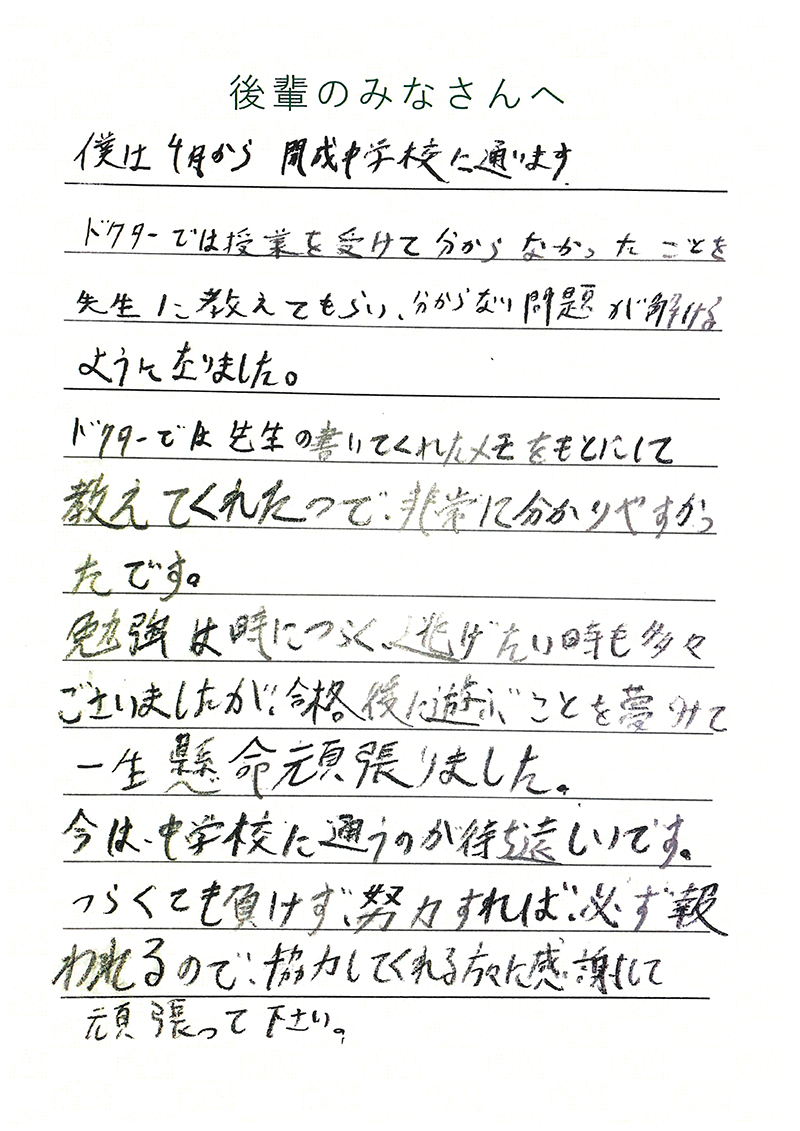 後輩のみなさんへ
僕は4月から 開成中学校に通います
ドクターでは授業を受けて分からなかったことを
先生に教えてもらい、分からない問題が解ける
ようになりました。
ドクターでは先生の書いてくれたメモをもとにして
教えてくれたので、非常に分かりやすかっ
たです。
勉強は時につらく、逃げたい時も多々
ございましたが、合格後に遊ぶことを夢みて
一生懸命頑張りました。
今は、中学校に通うのが待ち遠しいです。
つらくても負けず、努力すれば、必ず報
われるので、協力してくれる方々に感謝して
頑張って下さい。